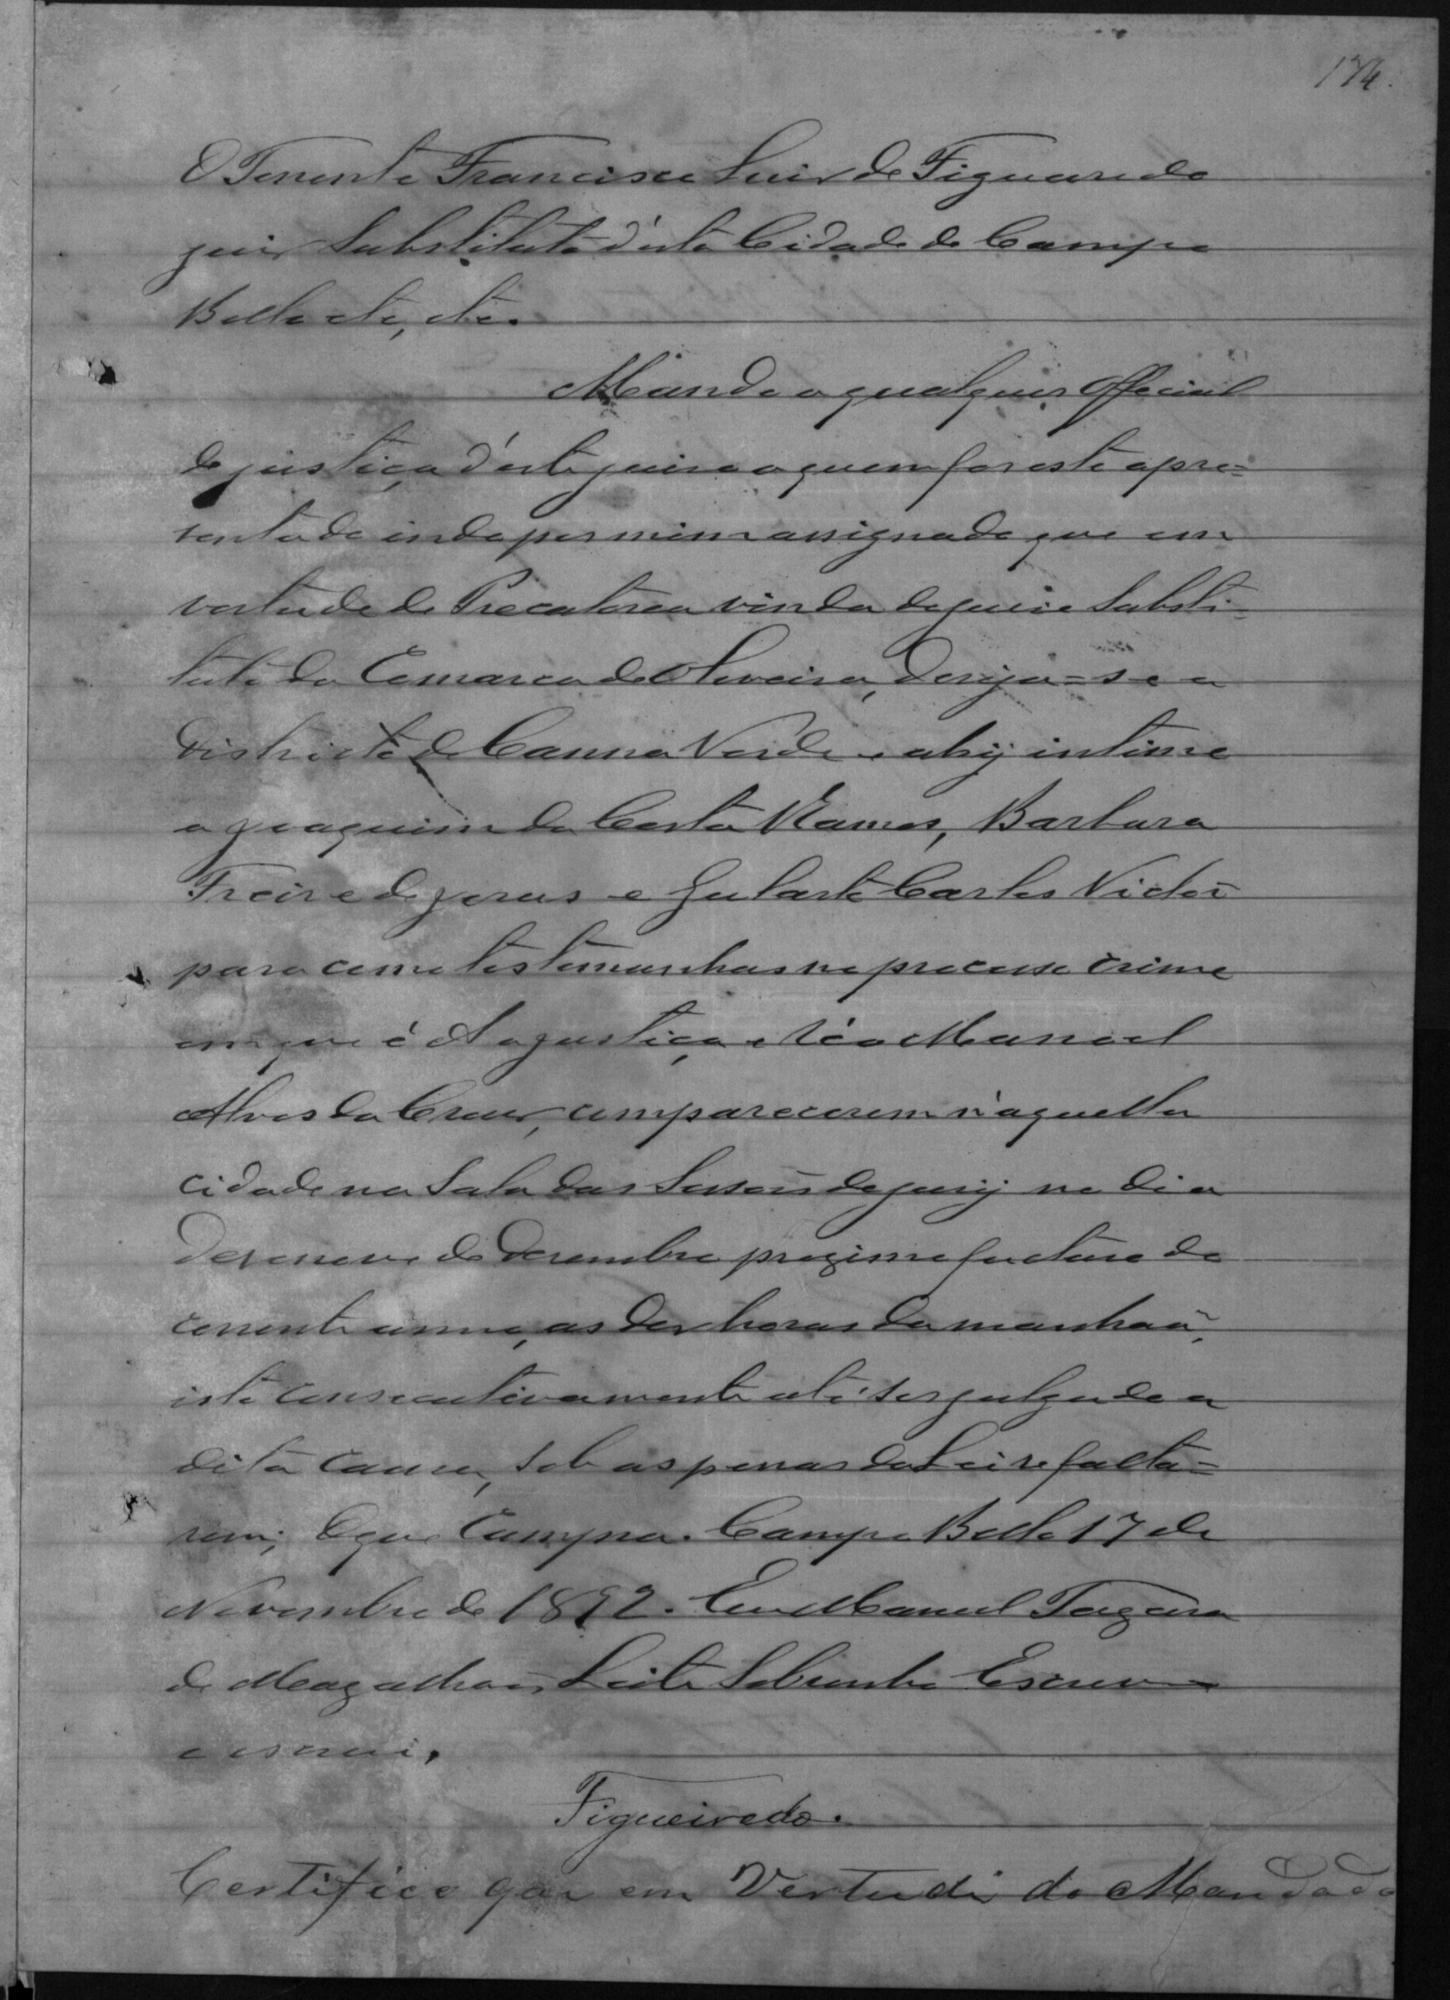 174.
O Tenente Francisco Luiz de Figueiredo
juiz Substituto d'esta Cidade de Campo
Bello etc, etc.
Mando a qualquer Official
de justiça d'este juizo a quem for este apre=
sentado indo por mim assignado que em
vertude de Precatorea vinda do juizo Substi=
tuto da Comarca de Oliveira, derija=se a
districto de Canna Verde e ahy intime
a Joaquim da Costa Ramos, Barbara
Freire de Jezus e Gularte Carlos Victor
para como testemunhas no processo crime
em que é A a justiça e Réo Manoel
Alves da Cruz, comparecerem n'aquella
cidade na Sala das Sessoẽs do jury no dia
dezenove de Dezembro proximo futuro do
corrente anno, as dez horas da manhaã,
isto consecutivamente até ser julgado a
dita causa, sob as penas da Lei se falta=
rem; O que Cumpra. Campo Bello 17 de
Novembro de 1892. Eu Manoel Teixeira
de Magalhaẽs Leite Sobrinho Escrivão
o escrevi.
Figueiredo.
Certifico que em Vertude do Mandado